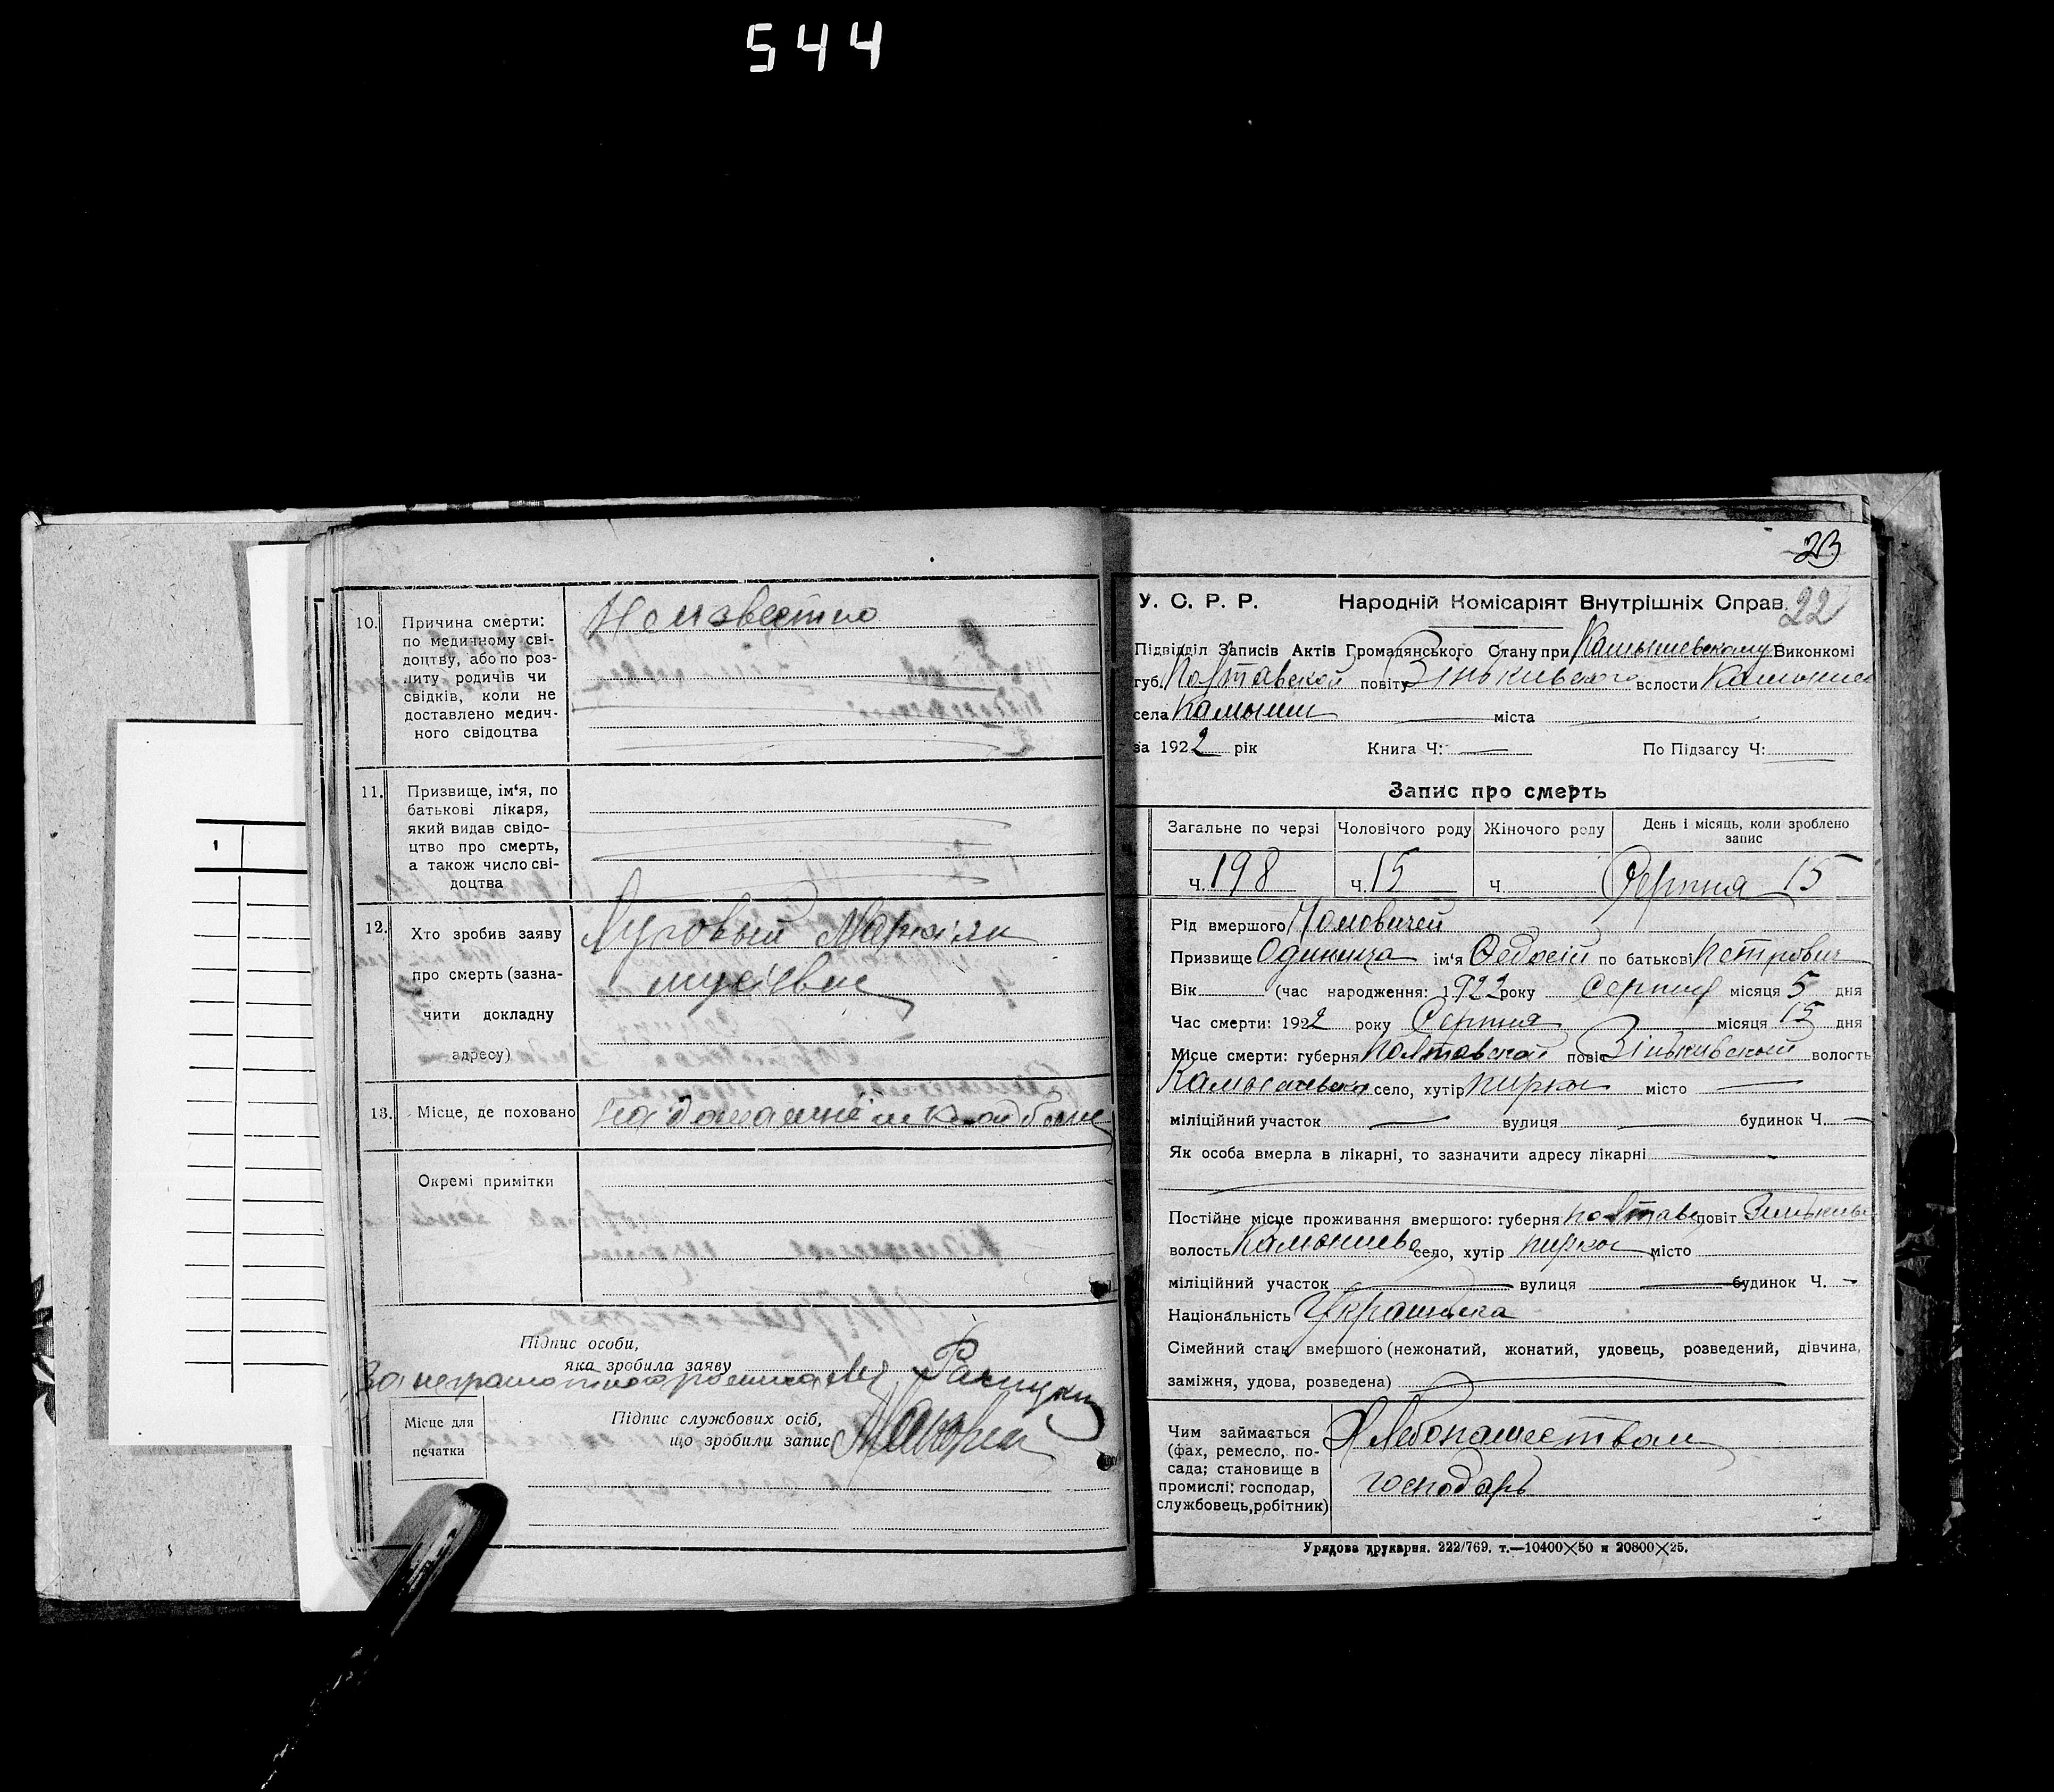 544
10. Причина смерти: Неизвестно
по медичному сві-
доцтву, або по роз-
питу родичів чи
свідків, коли не
доставлено медич-
ного свідоцтва
11. Призвище, ім'я, по
батькові лікаря,
який видав свідо-
цтво про смерть,
а також число сві-
доцтва
12. Хто зробив заяву Луговый
про смерть (зазна-
чити докладну
адресу)
13. Місце, де поховано на
Окремі примітки
Підпис особи,
яка зробила заяву
За
Місце для
печатки
Підпис службових осіб,
що зробили запис
23
У. С. Р. Р. Народній Комісаріят Внутрішніх Справ. 22
Підвідділ Записів Актів Громадянського Стану при Камышевскому Виконкомі
губ. Полтавской повіту Зіньківского волости Камышев
села Камыши міста
за 1922 рік Книга Ч: По Підзагсу Ч:
Запис про смерть
Загальне по черзі Чоловічого роду Жіночого роду День і місяць, коли зроблено
запис
Ч. 198 Ч. 15 Ч. Серпня 15
Рід вмершого Чоловичей
Призвище Одиница ім'я Федосій по батькові Петрович
Вік (час народження: 1922 року Серпня місяця 5 дня
Час смерти: 1922 року Серпня місяця 15 дня
Місце смерти: губерня Полтавской повіт Зіньківский волость
Камышевска село, хутір Пирки місто
міліційний участок вулиця будинок Ч.
Як особа вмерла в лікарні, то зазначити адресу лікарні
Постійне місце проживання вмершого: губерня Полтавс повіт Зиньківс
волость Камышевс село, хутір Пирки місто
міліційний участок вулиця будинок Ч.
Національність Украинска
Сімейний стан вмершого (нежонатий, жонатий, удовець, розведений, дівчина,
заміжня, удова, розведена)
Чим займається Хлебопашеством
(фах, ремесло, по-
сада; становище в господарь
промислі: господар,
службовець, робітник)
Урядова друкарня. 222/769. т.—10400×50 и 20800×25.